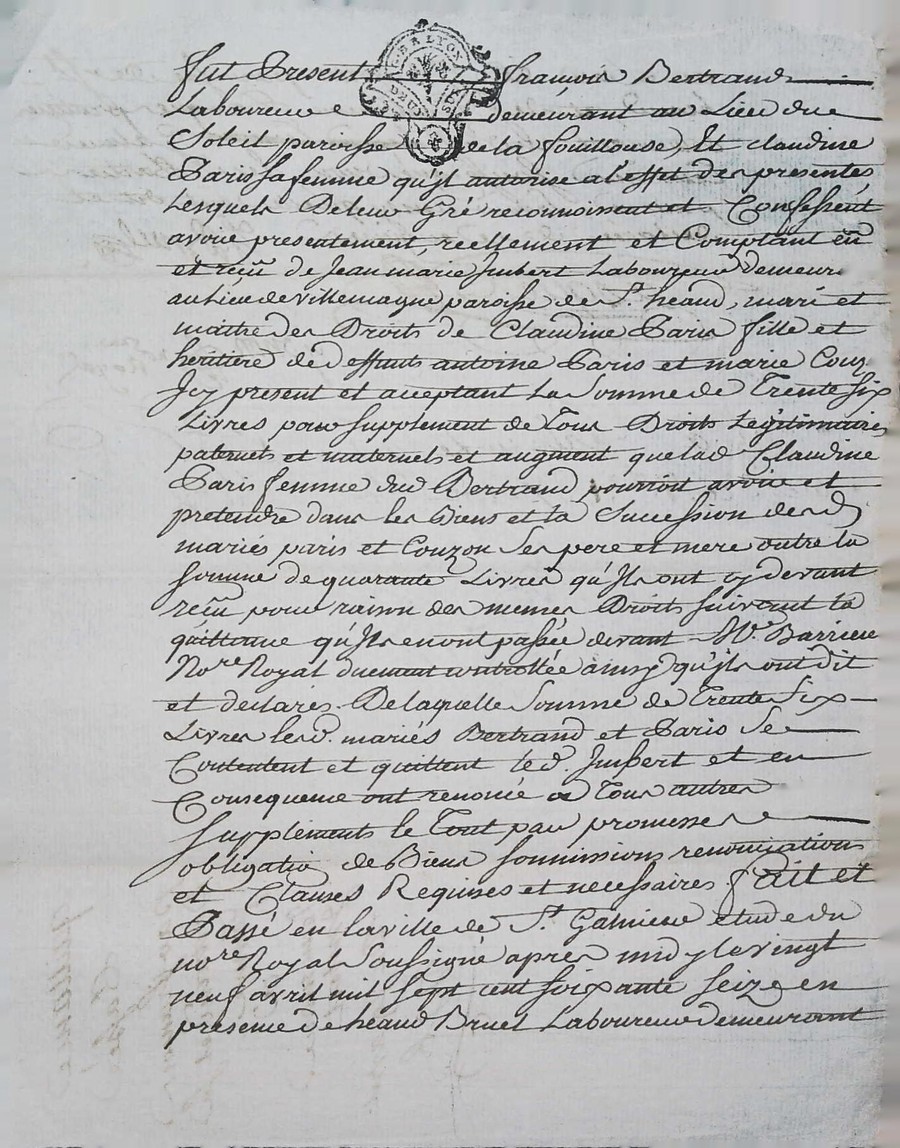 fut Present François Bertrand
Laboureur demeurant au Lieu du
Soleil paroisse de la fouillouse, Et claudine
Paris sa femme qu'jl autorise a l'effet des presentes
Lesquels De leur Gré reconnoissent et Confessent
avoir presentement, reellement et Comptant eü
et reçü de Jean marie Jmbert Laboureur demeur
au lieu de villemagne paroisse de St. heand, mari et
maitre des Droits de Claudine Paris fille et
heritiere de deffunts antoine Paris et marie Couz
Jcy present et acceptant La Somme de Trente Six
Livres pour supplement de Tous Droits Legitimaires
paternels et maternels et augment que lad Claudine
Paris femme dud Bertrand pourroit avoir et
pretendre dans les Biens et la Succession desd
mariés paris et Couzon Ses pere et mere outre la
somme de quarante Livres qu'Jls ont cy devant
reçü pour raison des memes Droits suivant la
quittance qu'Jls en ont passée devant Me. Barriere
Nore Royal duement controllée ainsy qu'jls ont dit
et declarés. De laquelle Somme de Trente Six
Livres lesd. mariés Bertrand et Paris Se
Contentent et quittent led. Jmbert et en
Consequence ont renoncé a Tous autres
Supplements le Tout par promesses
obligatio de Biens soumissions renonciations
et Clauses Requises et necessaires fait et
Passé en la ville de St. Galmier etude du
nore Royal Soussigné apres midy le vingt
neuf avril mil sept cent soixante seize en
presence de heand Bruel Laboureur demeurant